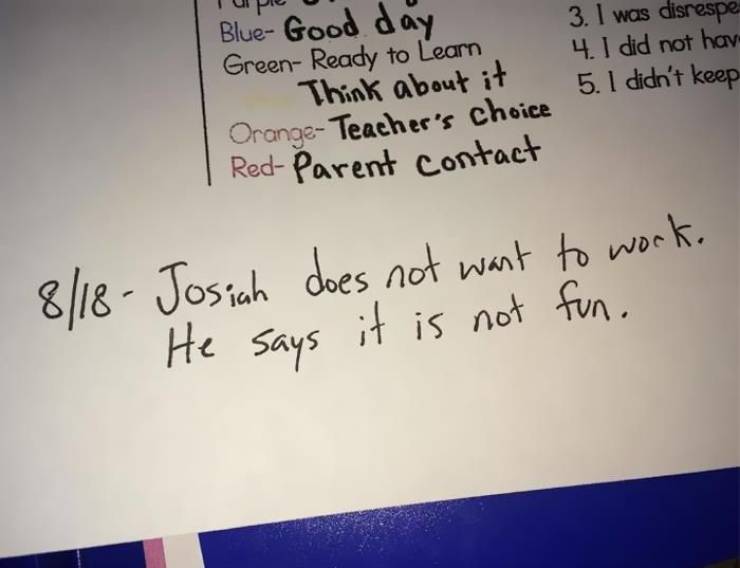 Blue- Good day
Green- Ready to Learn
Think about it
Orange- Teacher's Choice
Red- Parent contact
3. I was
4. I did not
5. I didn't keep
8/18- Josiah does not want to work.
He says it is not fun.